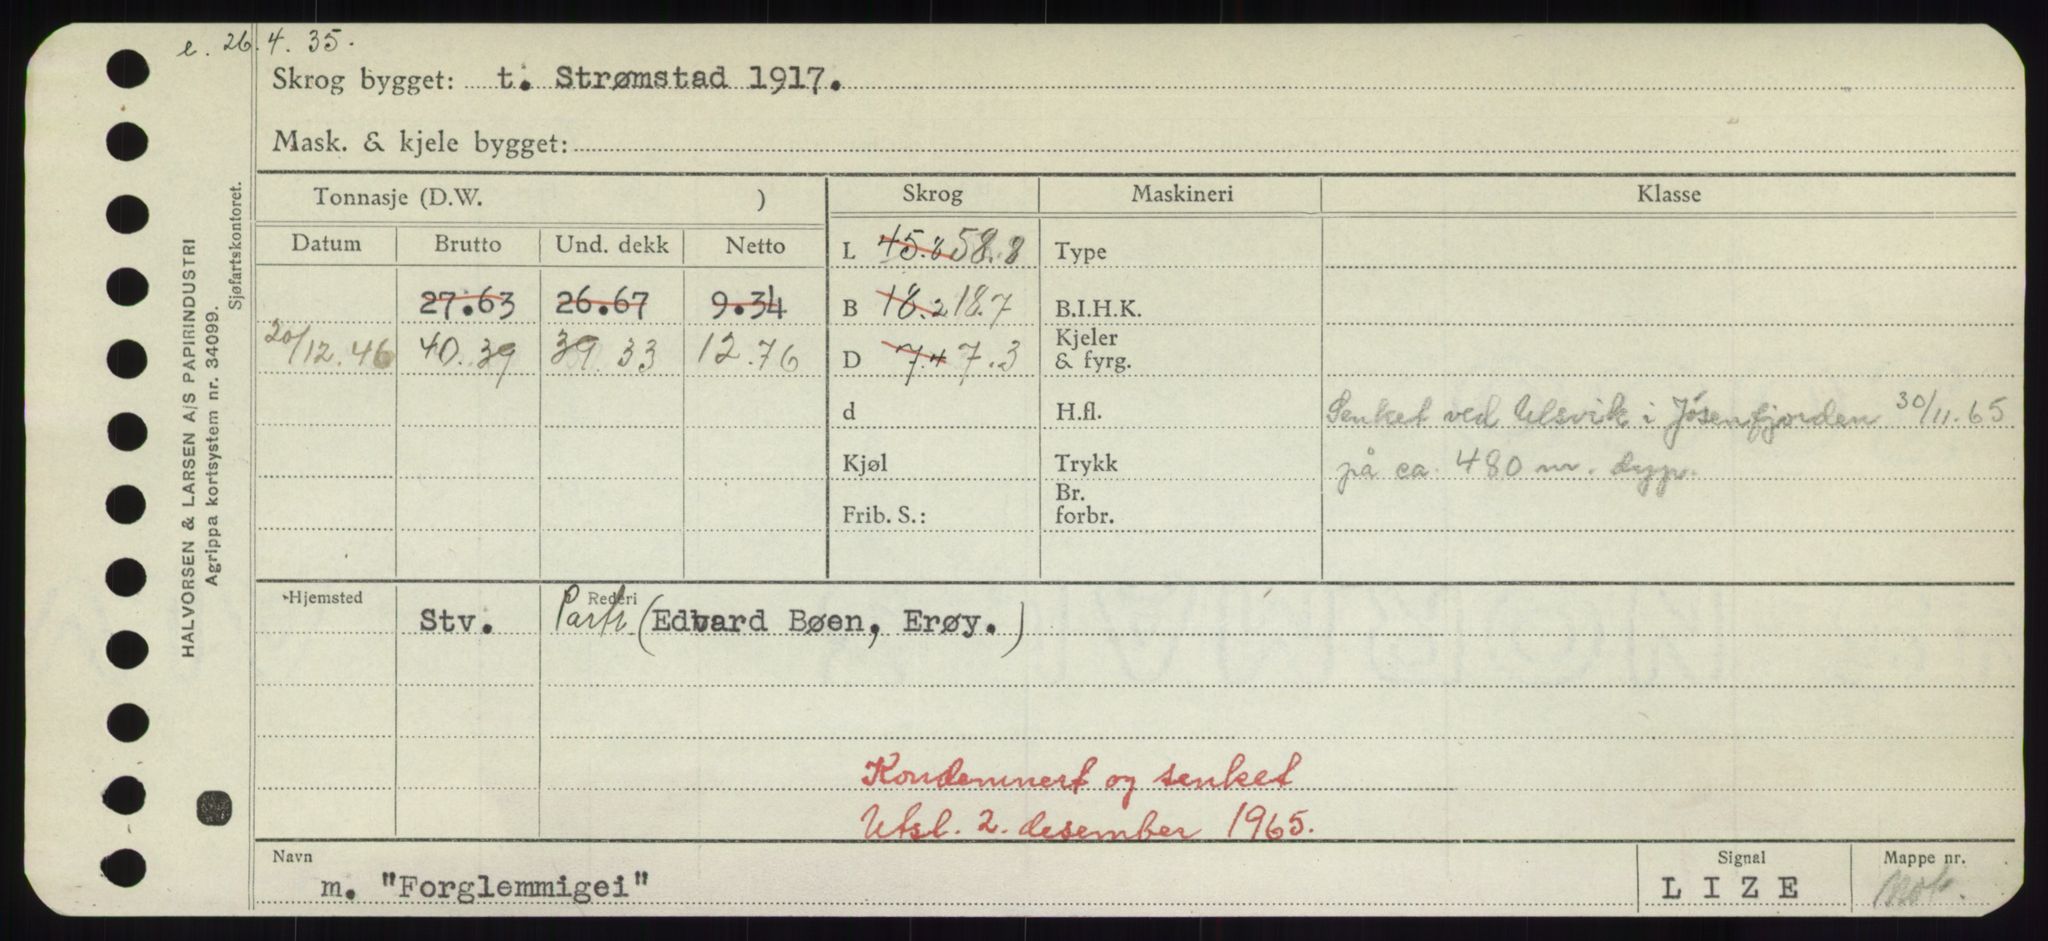 e. 26.4.35.
Skrog bygget: t. Strømstad 1917.
Mask. & kjele bygget:
Tonnasje (D.W. ) Skrog Maskineri Klasse
Datum Brutto Und. dekk Netto
L 45.8 58.8 Type
27.63 26.67 9.34 B 18.2 18.7 B.I.H.K.
20/12.46 40.39 39.33 12.76 D 7.4 7.3 Kjeler & fyrg.
d H.fl. Senket ved Ulsvik i Jøsenfjorden 30/11.65
Kjøl Trykk på ca. 480 m. dyp.
Frib. S.: Br. forbr.
Hjemsted Rederi
Stv. Partr. (Edvard Bøen, Erøy.)
Kondemnert og senket
Utsl. 2. desember 1965.
Navn Signal Mappe nr.
m. "Forglemmigei" L I Z E Mot.
HALVORSEN & LARSEN A/S PAPIRINDUSTRI
Agrippa kortsystem nr. 34099.
Sjøfartskontoret.